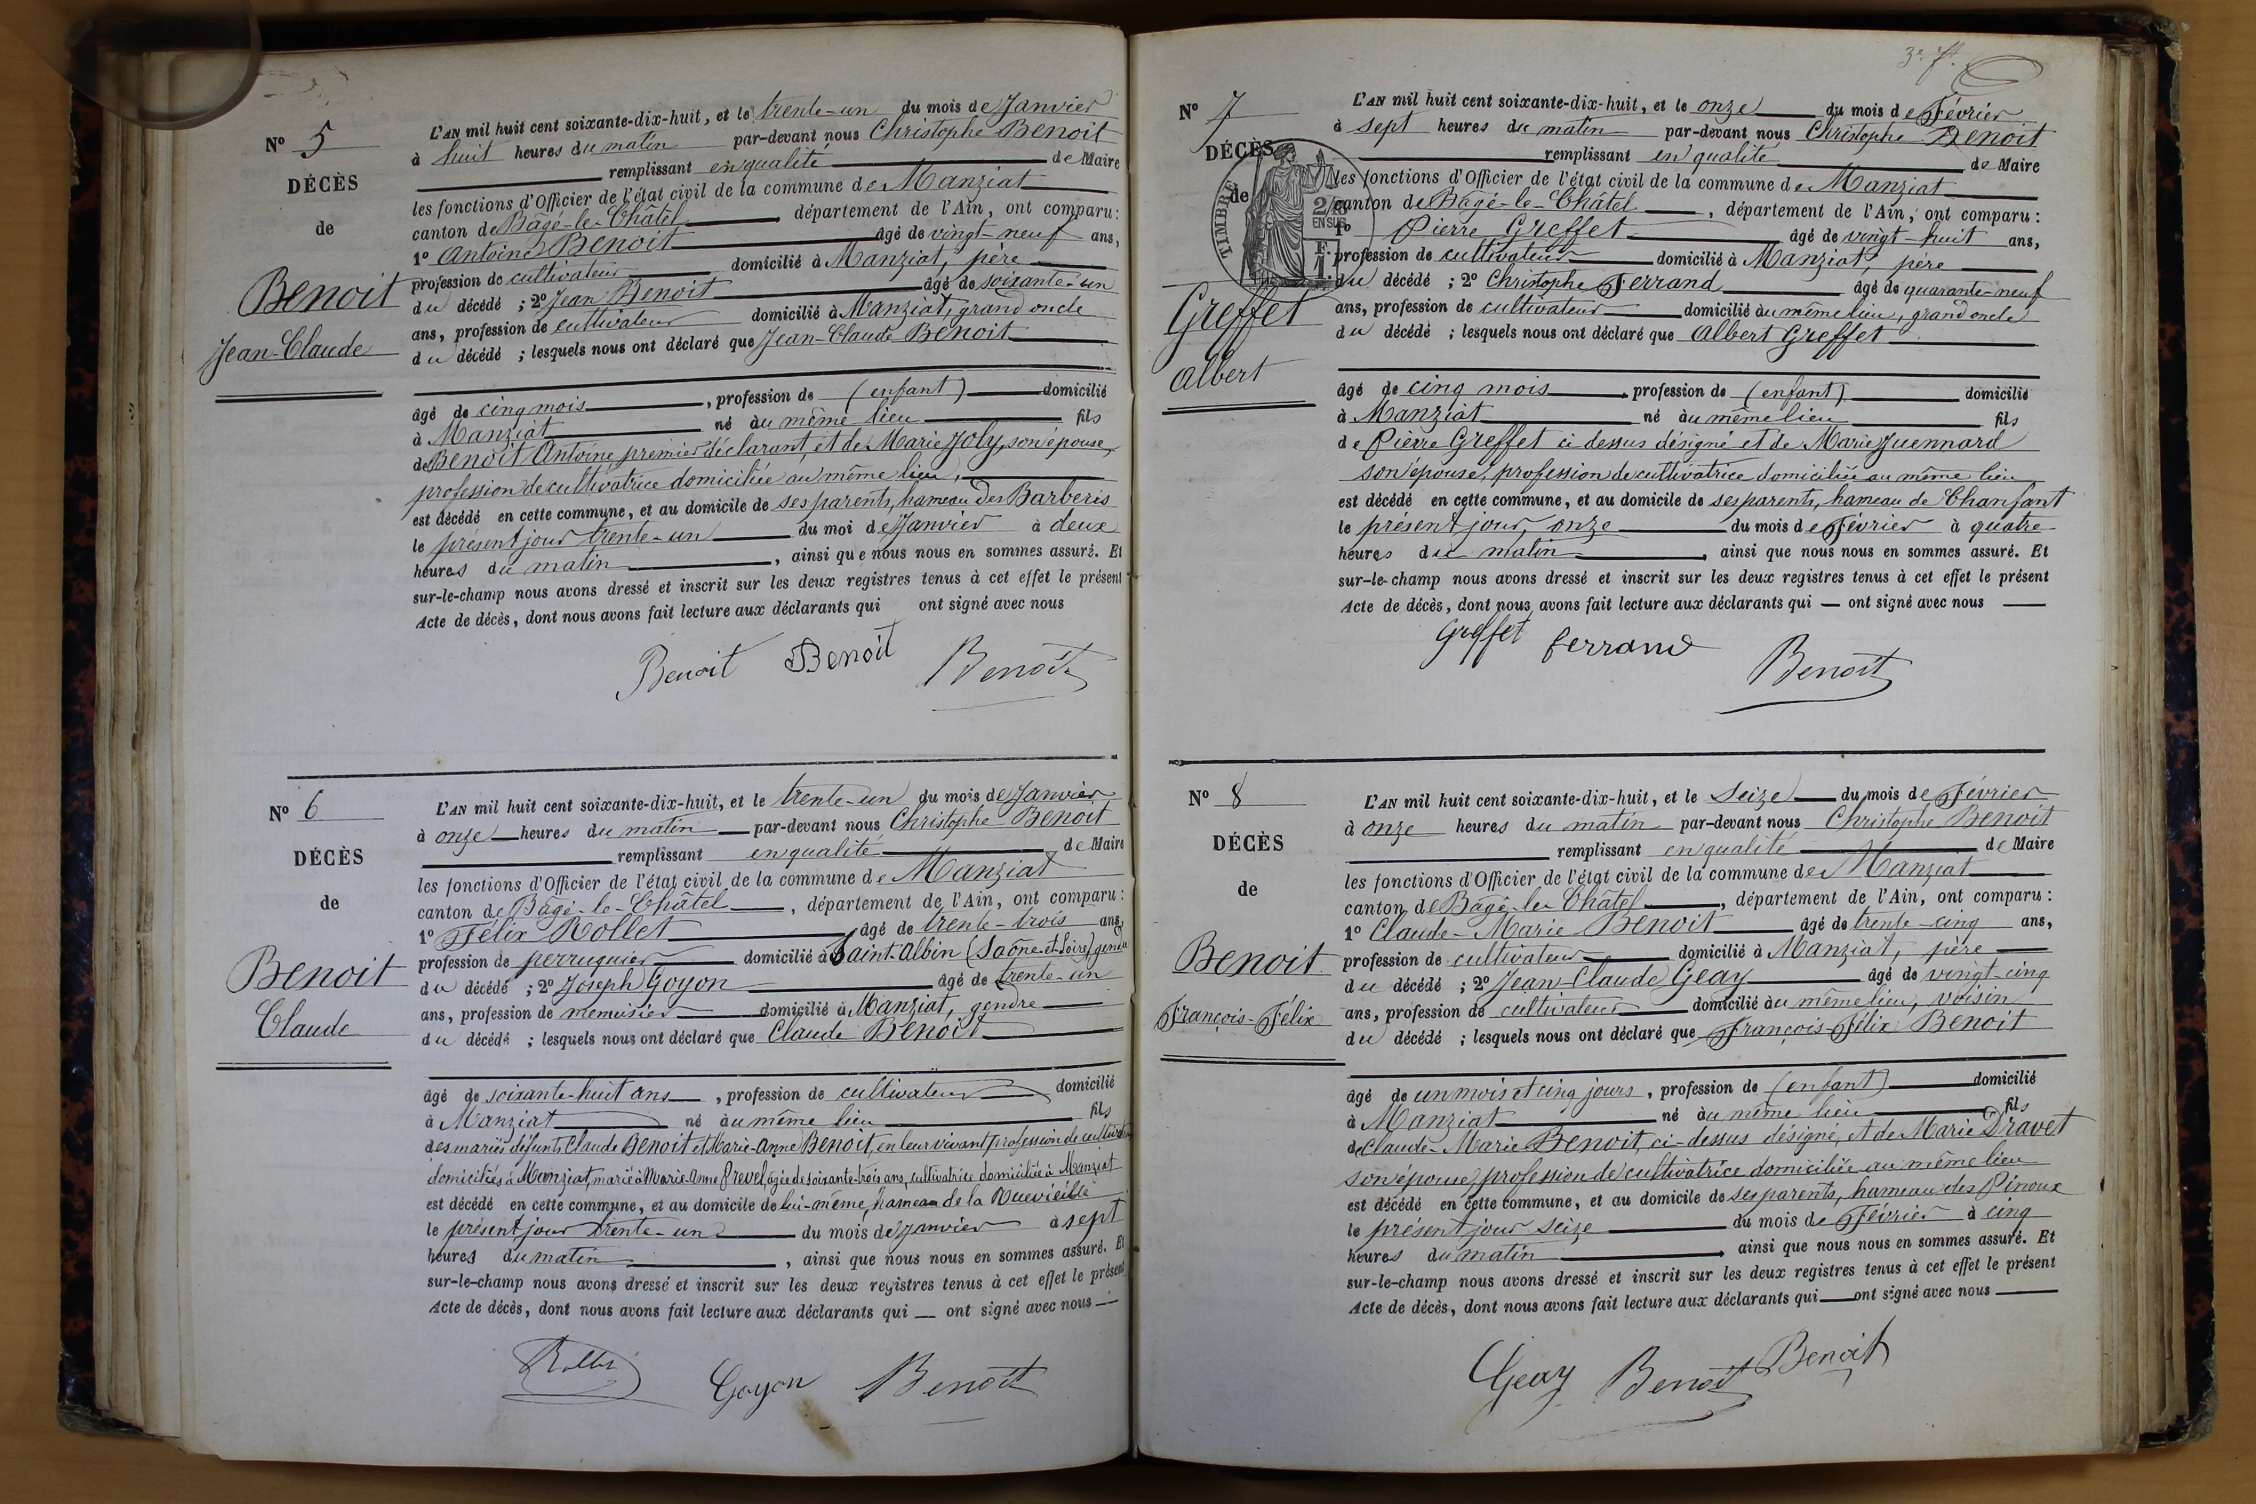 Nº 5
DÉCÈS
de
Benoit
Jean-Claude
L'AN mil huit cent soixante-dix-huit, et le trente-un du mois de Janvier
à huit heures du matin par-devant nous Christophe Benoit
remplissant en qualité de Maire
les fonctions d'Officier de l'état civil de la commune de Manziat
canton de Bâgé-le-Châtel, département de l'Ain, ont comparu :
1º Antoine Benoit âgé de vingt-neuf ans,
profession de cultivateur domicilié à Manziat, père
du décédé ; 2º Jean Benoit âgé de soixante-un
ans, profession de cultivateur domicilié à Manziat, grand oncle
du décédé ; lesquels nous ont déclaré que Jean-Claude Benoit
âgé de cinq mois, profession de (enfant) domicilié
à Manziat né au même lieu fils
de Benoit Antoine premier déclarant, et de Marie Joly, son épouse,
profession de cultivatrice domiciliée au même lieu,
est décédé en cette commune, et au domicile de ses parents, hameau des Barberis
le présent jour trente-un du moi de Janvier à deux
heures du matin, ainsi que nous nous en sommes assuré. Et
sur-le-champ nous avons dressé et inscrit sur les deux registres tenus à cet effet le présent
Acte de décès, dont nous avons fait lecture aux déclarants qui ont signé avec nous
Benoit Benoit Benoit
Nº 6
DÉCÈS
de
Benoit
Claude
L'AN mil huit cent soixante-dix-huit, et le trente-un du mois de Janvier
à onze heures du matin par-devant nous Christophe Benoit
remplissant en qualité de Maire
les fonctions d'Officier de l'état civil de la commune de Manziat
canton de Bâgé-le-Châtel, département de l'Ain, ont comparu :
1º Félix Rollet âgé de trente-trois ans,
profession de perruquier domicilié à Saint-Albin (Saône-et-Loire) gendre
du décédé ; 2º Joseph Goyon âgé de trente-un
ans, profession de menuisier domicilié à Manziat, gendre
du décédé ; lesquels nous ont déclaré que Claude Benoit
âgé de soixante-huit ans, profession de cultivateur domicilié
à Manziat né au même lieu fils
des mariés défunts Claude Benoit et Marie-Anne Benoit, en leur vivant profession de cultivateurs
domiciliés à Manziat, marié à Marie-Anne Prevel, âgée de soixante-trois ans, cultivatrice domiciliée à Manziat
est décédé en cette commune, et au domicile de lui-même, hameau de la
le présent jour trente-un du mois de Janvier à sept
heures du matin, ainsi que nous nous en sommes assuré. Et
sur-le-champ nous avons dressé et inscrit sur les deux registres tenus à cet effet le présent
Acte de décès, dont nous avons fait lecture aux déclarants qui — ont signé avec nous —
Rollet Goyon Benoit
3e f.
Nº 7
DÉCÈS
de
Greffet
Albert
TIMBRE
2/10
EN SUS
F.
1.
L'AN mil huit cent soixante-dix-huit, et le onze du mois de Février
à sept heures du matin par-devant nous Christophe Benoit
remplissant en qualité de Maire
les fonctions d'Officier de l'état civil de la commune de Manziat
canton de Bâgé-le-Châtel, département de l'Ain, ont comparu :
1º Pierre Greffet âgé de vingt-huit ans,
profession de cultivateur domicilié à Manziat, père
du décédé ; 2º Christophe Ferrand âgé de quarante-neuf
ans, profession de cultivateur domicilié au même lieu, grand oncle
du décédé ; lesquels nous ont déclaré que Albert Greffet
âgé de cinq mois, profession de (enfant) domicilié
à Manziat né au même lieu fils
de Pierre Greffet ci dessus désigné et de Marie Juennard
son épouse, profession de cultivatrice domiciliée au même lieu
est décédé en cette commune, et au domicile de ses parents, hameau de Chanfant
le présent jour, onze du mois de Février à quatre
heures du matin, ainsi que nous nous en sommes assuré. Et
sur-le-champ nous avons dressé et inscrit sur les deux registres tenus à cet effet le présent
Acte de décès, dont nous avons fait lecture aux déclarants qui — ont signé avec nous —
Greffet ferrand Benoit
Nº 8
DÉCÈS
de
Benoit
François-Félix
L'AN mil huit cent soixante-dix-huit, et le Seize du mois de Février
à onze heures du matin par-devant nous Christophe Benoit
remplissant en qualité de Maire
les fonctions d'Officier de l'état civil de la commune de Manziat
canton de Bâgé-le-Châtel, département de l'Ain, ont comparu :
1º Claude-Marie Benoit âgé de trente-cinq ans,
profession de cultivateur domicilié à Manziat, père
du décédé ; 2º Jean-Claude Geay âgé de vingt-cinq
ans, profession de cultivateur domicilié au même lieu, voisin
du décédé ; lesquels nous ont déclaré que François-Félix Benoit
âgé de un mois et cinq jours, profession de (enfant) domicilié
à Manziat né au même lieu fils
de Claude-Marie Benoit, ci-dessus désigné, et de Marie Dravet
son épouse, profession de cultivatrice domiciliée au même lieu
est décédé en cette commune, et au domicile de ses parents, hameau des Pinoux
le présent jour seize du mois de Février à cinq
heures du matin, ainsi que nous nous en sommes assuré. Et
sur-le-champ nous avons dressé et inscrit sur les deux registres tenus à cet effet le présent
Acte de décès, dont nous avons fait lecture aux déclarants qui — ont signé avec nous —
Geay Benoit Benoit